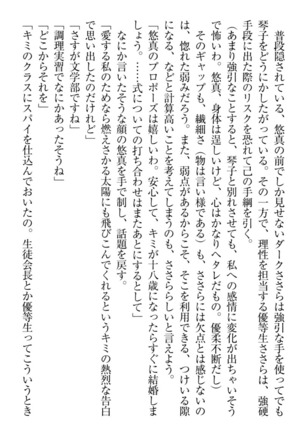 普段隠されている、悠真の前でしか見せないダークささらは、強引な手を使ってでも
琴子をどうにかしたがっている。その一方で、理性を担当する優等生ささらは、強硬
手段に出た際のリスクを恐れて己の手綱を引く。
「あまり強引なことすると、琴子と別れさせても、私への感情に変化が出ちゃいそう
で怖いわ。悠真、身体は逞しいけど、心はかなりヘタレだもの。優柔不断だし」
そのギャップも、繊細さ（物は言い様である）も、ささらには欠点とは感じないの
は、惚れた弱みだろう。また、弱点があるからこそ、そこを利用できる、つけいる隙
になる、などと計算高いことを考えてしまうのも、ささららしいと言えよう。
「悠真のプロポーズは嬉しいわ。安心して、キミが十八歳になったらすぐに結婚しま
しょう。……式についての打ち合わせはまたあとにするとして」
なにか言いたそうな顔の悠真を手で制し、話題を戻す。
「愛する私のためなら燃えさかる太陽にも飛びこんでくれるというキミの熱烈な告白
で思い出したのだけれど」
「さすが文学部ですね」
「調理実習でなにかあったそうね」
「どこからそれを」
「キミのクラスにスパイを仕込んでおいたの。生徒会長とか優等生ってこういうとき